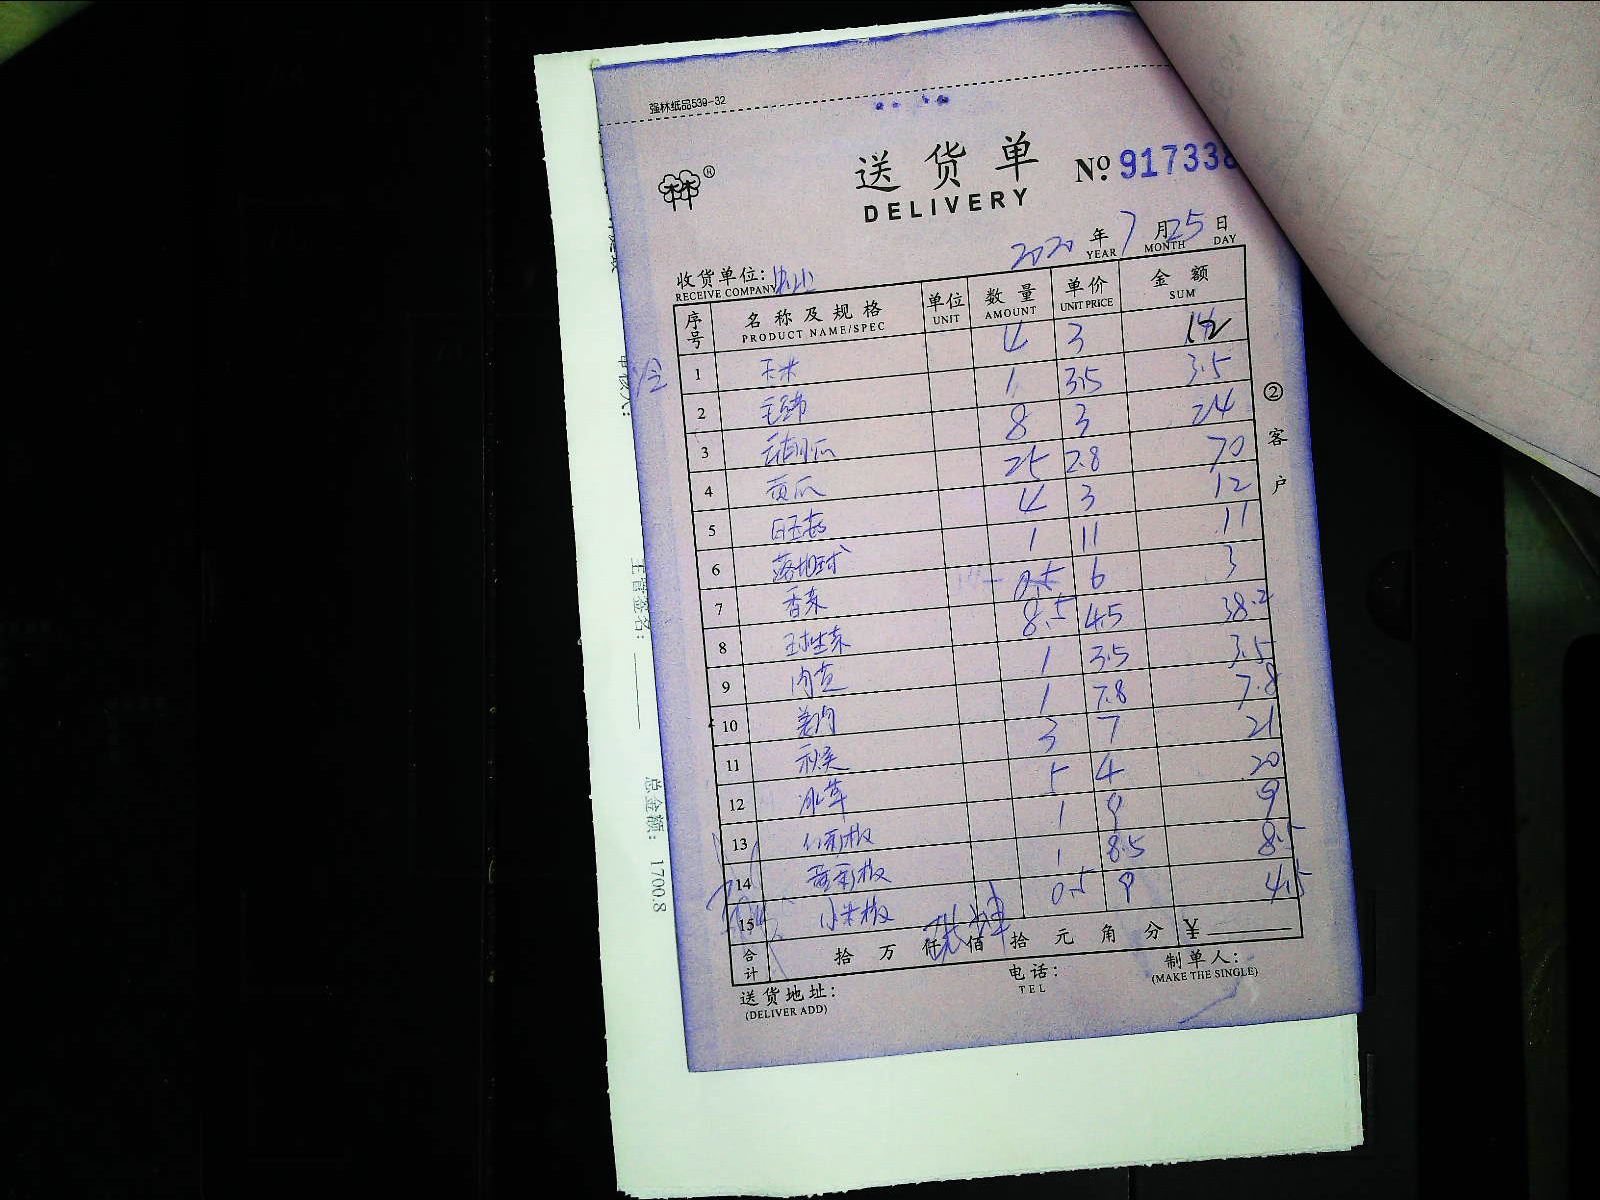 强林纸品539-32
®
送货单
DELIVERY
№ 917338
2020 年 YEAR 7 月 MONTH 25 日 DAY
收货单位:
RECEIVE COMPANY
序号 名称及规格 PRODUCT NAME/SPEC 单位 UNIT 数量 AMOUNT 单价 UNIT PRICE 金额 SUM
1 玉米 4 3 12
2 1 3.5 3.5
3 8 3 24
4 黄瓜 25 2.8 70
5 白玉菇 4 3 12
6 1 11 11
7 香菜 0.5 6 3
8 球生菜 8.5 4.5 38.2
9 1 3.5 3.5
10 姜肉 1 7.8 7.8
11 秋葵 3 7 21
12 冰草 5 4 20
13 红彩椒 1 9 9
14 黄彩椒 1 8.5 8.5
15 小米椒 0.5 9 4.5
合计 拾 万 仟 佰 拾 元 角 分 ¥
送货地址:
(DELIVER ADD)
电话:
TEL
制单人:
(MAKE THE SINGLE)
② 客户
主管签名:
总金额: 1700.8